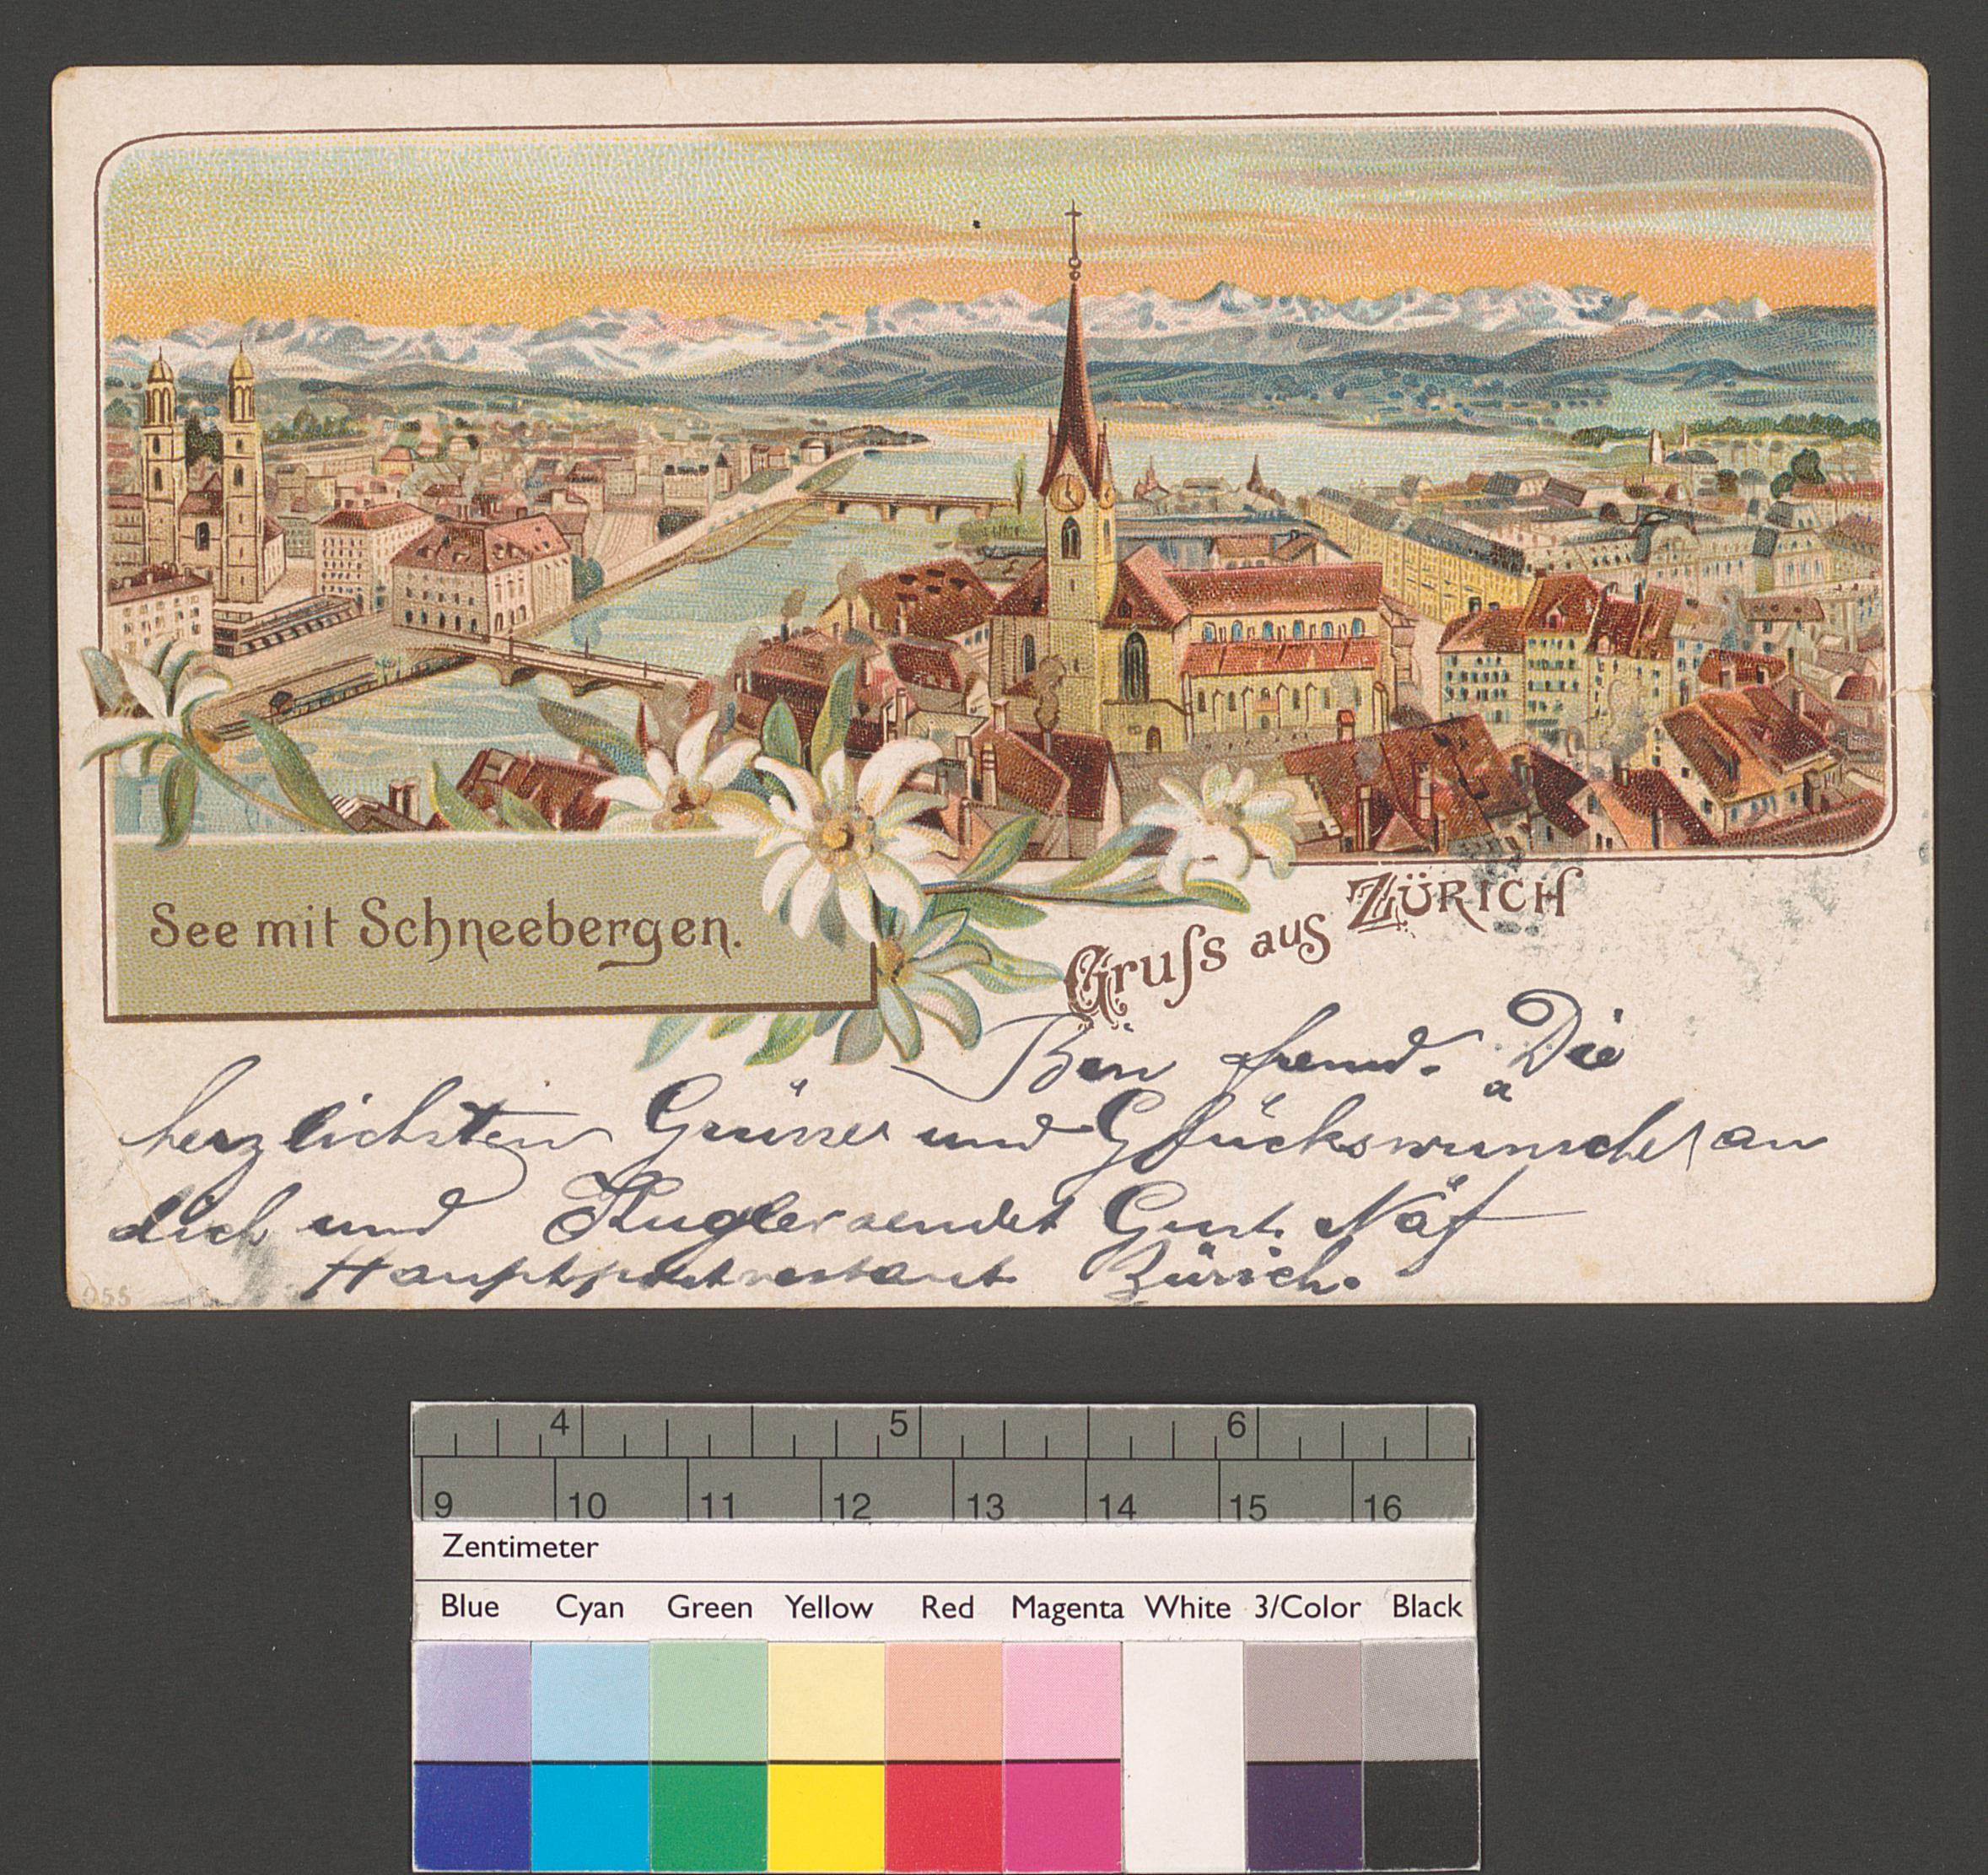 See mit Schneebergen.
Gruſs aus ZÜRICH
Bin fremd. Die
herzlichsten Grüsse und Glückswünsche an
dich und Kugler sendet Gust. Näf
Hauptpostrestant Zürich.
055
4 5 6
9 10 11 12 13 14 15 16
Zentimeter
Blue Cyan Green Yellow Red Magenta White 3/Color Black